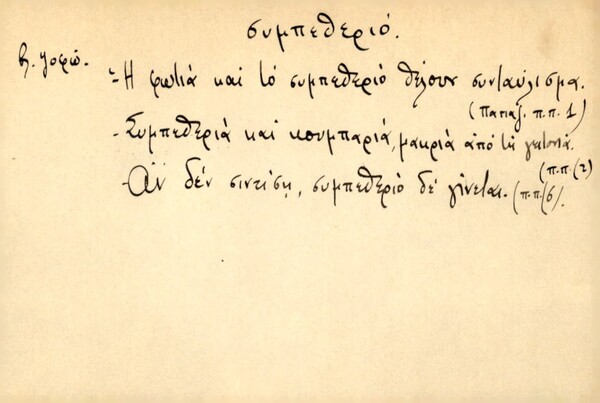 συμπεθεριό.
βλ. χορό.
- Ἡ φωτιά καί τό συμπεθεριό θέλουν συνταύλισμα.
(Παπαζ. π.π. 1)
- Συμπεθεριά καί κουμπαριά, μακριά ἀπό τή γειτονιά.
(π.π. (2)
- Ἄν δέν σιντίσῃ, συμπεθεριό δέ γίνεται. (π.π. (6).